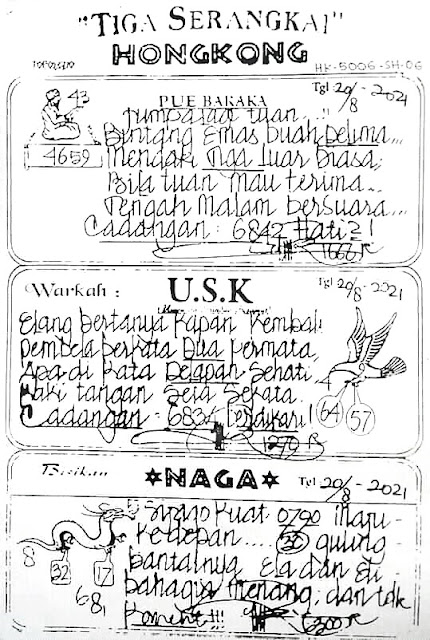 "TIGA SERANGKAI"
HONGKONG
HK-5006-SH-06
Tgl 20/8 - 2021
43
4659
PUE BARAKA
tuan...!!
Bintang Emas buah Delima...
Mendaki Tiga luar Biasa,
Bila tuan Mau terima...
Tengah Malam bersuara...
Cadangan : 6842 Hati2!
Warkah :
U.S.K
Tgl 20/8 - 2021
Elang bertanya Kapan Kembali
Pembela berkata Dua Permata,
Apa di kata Delapan Sehati
Kaki tangan Seia Sekata.
Cadangan : 6834
64
57
Bisikan
NAGA
Tgl 20/8 - 2021
8
32
17
68,
Kuat 0790 Maju -
Kedepan....
guling -
bantalnya
bahagia menang, dan tdk
Koment!!!